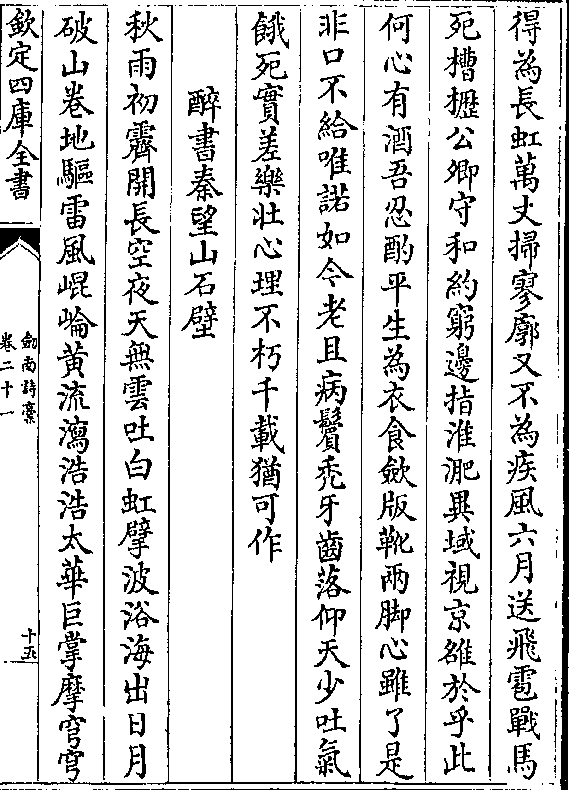 得為長虹萬丈掃寥廓又不為疾風六月送飛雹戰馬
死槽櫪公卿守和約窮邊指淮淝異域視京雒於乎此
何心有酒吾忍酌平生為衣食斂版靴兩脚心雖了是
非口不給唯諾如今老且病鬢禿牙齒落仰天少吐氣
餓死實差樂壯心埋不朽千載猶可作
醉書秦望山石壁
秋雨初霽開長空夜天無雲吐白虹擘波浴海出日月
破山卷地驅雷風崐崘黄流瀉浩浩太華巨掌摩穹穹
欽定四庫全書
劍南詩稾
卷二十一
十五